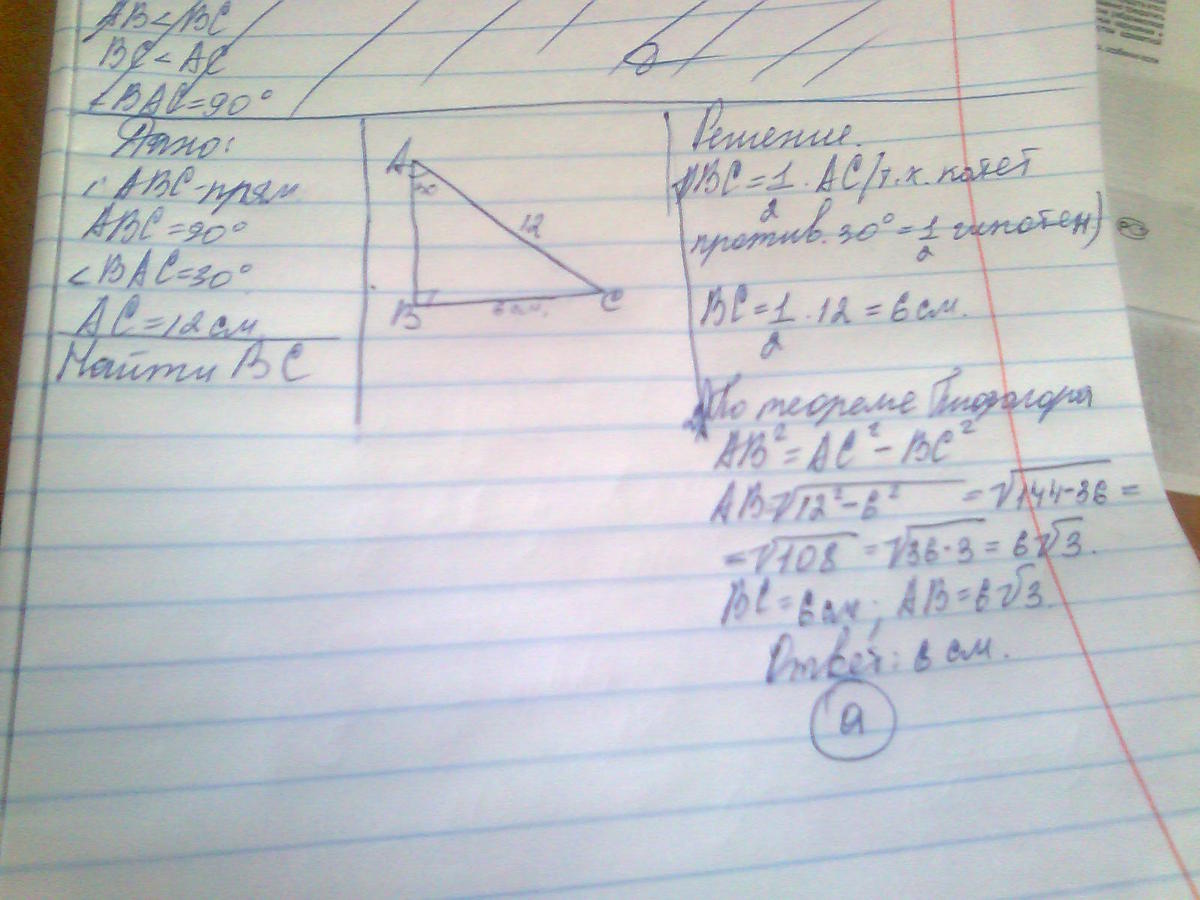 AB < BC
BC < AC
< BAC = 90°
Дано:
ABC - прям
ABC = 90°
< BAC = 30°
AC = 12 см
Найти BC
A
30
12
B
6 см.
C
Решение.
1) BC = 1/2 · AC (т.к. катет
против. 30° = 1/2 гипотен)
BC = 1/2 · 12 = 6 см.
2) По теореме Пифагора
AB² = AC² - BC²
AB = √12² - 6² = √144-36 =
= √108 = √36·3 = 6√3.
BC = 6 см; AB = 6√3.
Ответ: 6 см.